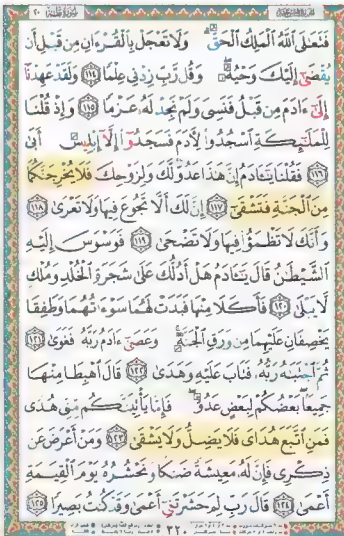 فَتَعَٰلَى ٱللَّهُ ٱلْمَلِكُ ٱلْحَقُّ ۗ وَلَا تَعْجَلْ بِٱلْقُرْءَانِ مِن قَبْلِ أَن
يُقْضَىٰٓ إِلَيْكَ وَحْيُهُۥ ۖ وَقُل رَّبِّ زِدْنِى عِلْمًا ﴿١١٤﴾ وَلَقَدْ عَهِدْنَآ
إِلَىٰٓ ءَادَمَ مِن قَبْلُ فَنَسِىَ وَلَمْ نَجِدْ لَهُۥ عَزْمًا ﴿١١٥﴾ وَإِذْ قُلْنَا
لِلْمَلَٰٓئِكَةِ ٱسْجُدُوا۟ لِءَادَمَ فَسَجَدُوٓا۟ إِلَّآ إِبْلِيسَ أَبَىٰ
﴿١١٦﴾ فَقُلْنَا يَٰٓـَٔادَمُ إِنَّ هَٰذَا عَدُوٌّ لَّكَ وَلِزَوْجِكَ فَلَا يُخْرِجَنَّكُمَا
مِنَ ٱلْجَنَّةِ فَتَشْقَىٰٓ ﴿١١٧﴾ إِنَّ لَكَ أَلَّا تَجُوعَ فِيهَا وَلَا تَعْرَىٰ ﴿١١٨﴾
وَأَنَّكَ لَا تَظْمَؤُا۟ فِيهَا وَلَا تَضْحَىٰ ﴿١١٩﴾ فَوَسْوَسَ إِلَيْهِ
ٱلشَّيْطَٰنُ قَالَ يَٰٓـَٔادَمُ هَلْ أَدُلُّكَ عَلَىٰ شَجَرَةِ ٱلْخُلْدِ وَمُلْكٍ
لَّا يَبْلَىٰ ﴿١٢٠﴾ فَأَكَلَا مِنْهَا فَبَدَتْ لَهُمَا سَوْءَٰتُهُمَا وَطَفِقَا
يَخْصِفَانِ عَلَيْهِمَا مِن وَرَقِ ٱلْجَنَّةِ ۚ وَعَصَىٰٓ ءَادَمُ رَبَّهُۥ فَغَوَىٰ ﴿١٢١﴾
ثُمَّ ٱجْتَبَٰهُ رَبُّهُۥ فَتَابَ عَلَيْهِ وَهَدَىٰ ﴿١٢٢﴾ قَالَ ٱهْبِطَا مِنْهَا
جَمِيعًۢا ۖ بَعْضُكُمْ لِبَعْضٍ عَدُوٌّ ۖ فَإِمَّا يَأْتِيَنَّكُم مِّنِّى هُدًى
فَمَنِ ٱتَّبَعَ هُدَاىَ فَلَا يَضِلُّ وَلَا يَشْقَىٰ ﴿١٢٣﴾ وَمَنْ أَعْرَضَ عَن
ذِكْرِى فَإِنَّ لَهُۥ مَعِيشَةً ضَنكًا وَنَحْشُرُهُۥ يَوْمَ ٱلْقِيَٰمَةِ
أَعْمَىٰ ﴿١٢٤﴾ قَالَ رَبِّ لِمَ حَشَرْتَنِىٓ أَعْمَىٰ وَقَدْ كُنتُ بَصِيرًا ﴿١٢٥﴾
٣٢٠